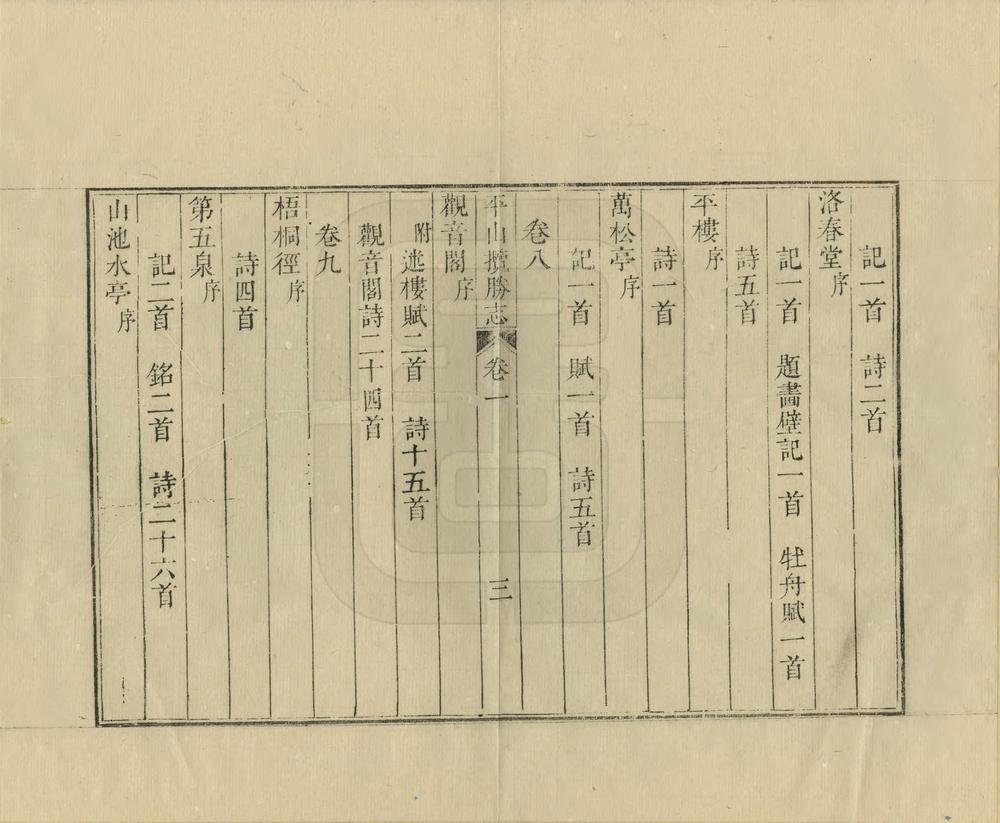 記一首　詩二首
洛春堂序
記一首　題畵壁記一首　牡舟賦一首
詩五首
平樓序
詩一首
萬松亭序
記一首　賦一首　詩五首
卷八
平山攬勝志　卷一　三
觀音閣序
附　迷樓賦二首　詩十五首
觀音閣詩二十四首
卷九
梧桐徑序
詩四首
第五泉序
記二首　銘二首　詩二十六首
山池水亭序